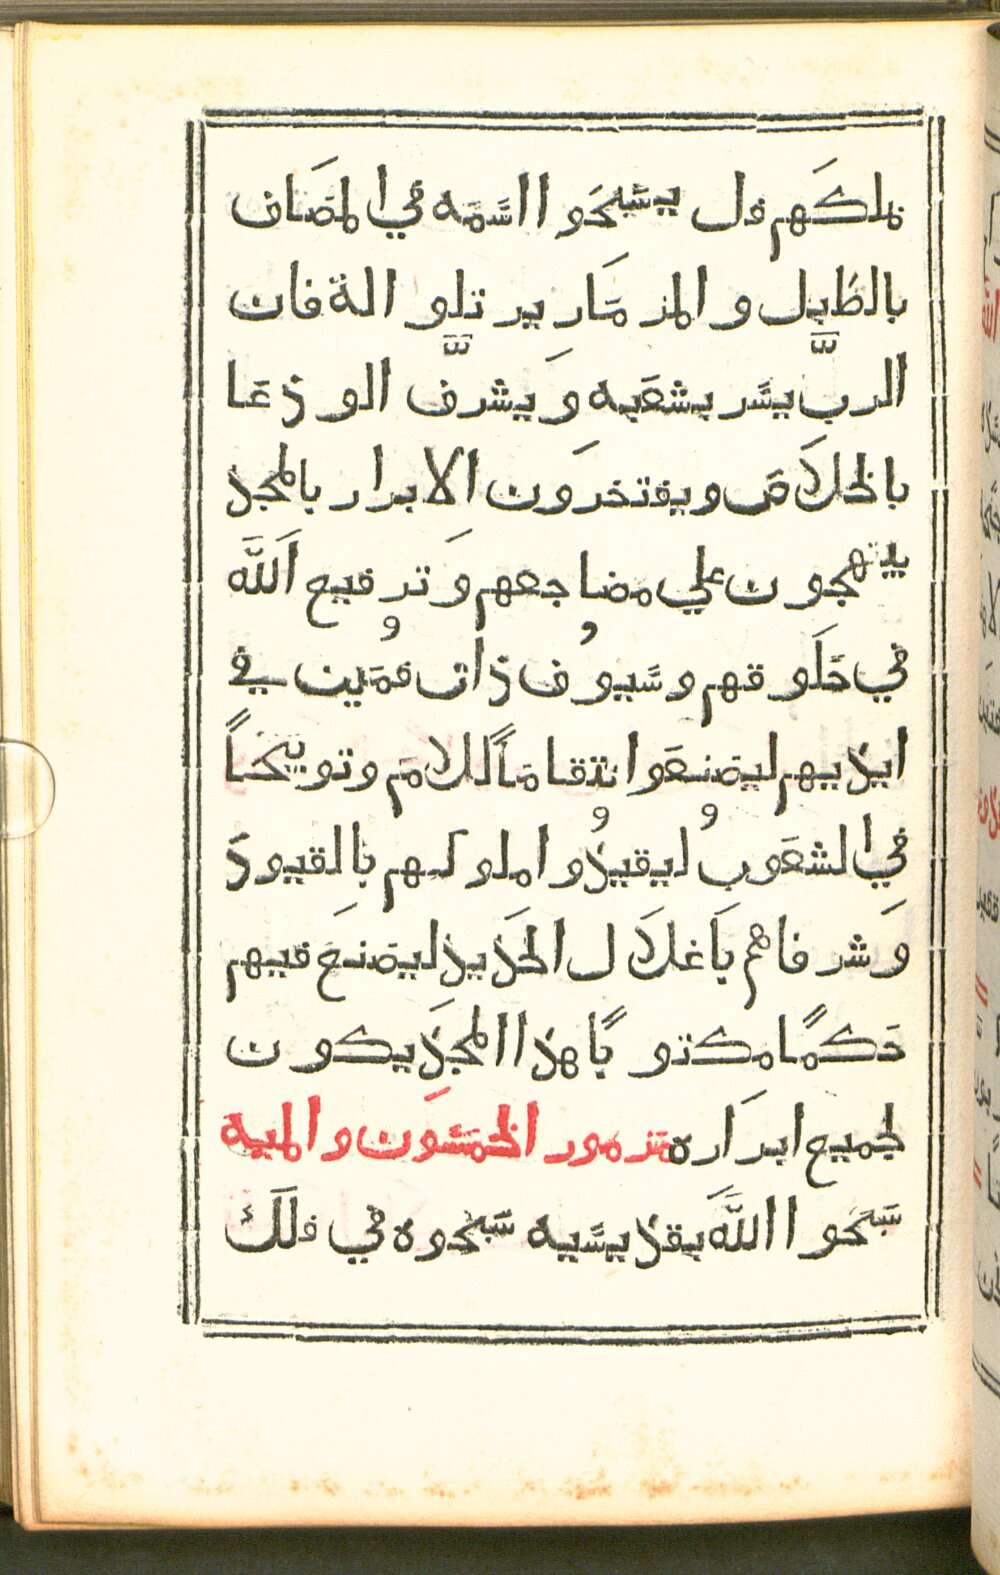 بملكهم فل يسبحوا اسمه في المصاف
بالطبل والمزمار يرتلوا الة فان
الرب يسر بشعبه ويشرف الودعا
بالخلاص ويفتخرون الابرار بالمجد
يبتهجون علي مضاجعهم وترفيع اللّٰه
في حلوقهم وسيوف ذات فمين في
ايديهم ليصنعوا انتقاماً للامم وتوبيخاً
في الشعوب ليقيدوا ملوكهم بالقيود
وشرفاهم باغلال الحديد ليصنع فيهم
حكماً مكتوباً هذا المجد يكون
لجميع ابراره مزمور الخمسون والميه
سبحوا اللّٰه بقديسيه سبحوه في فلك